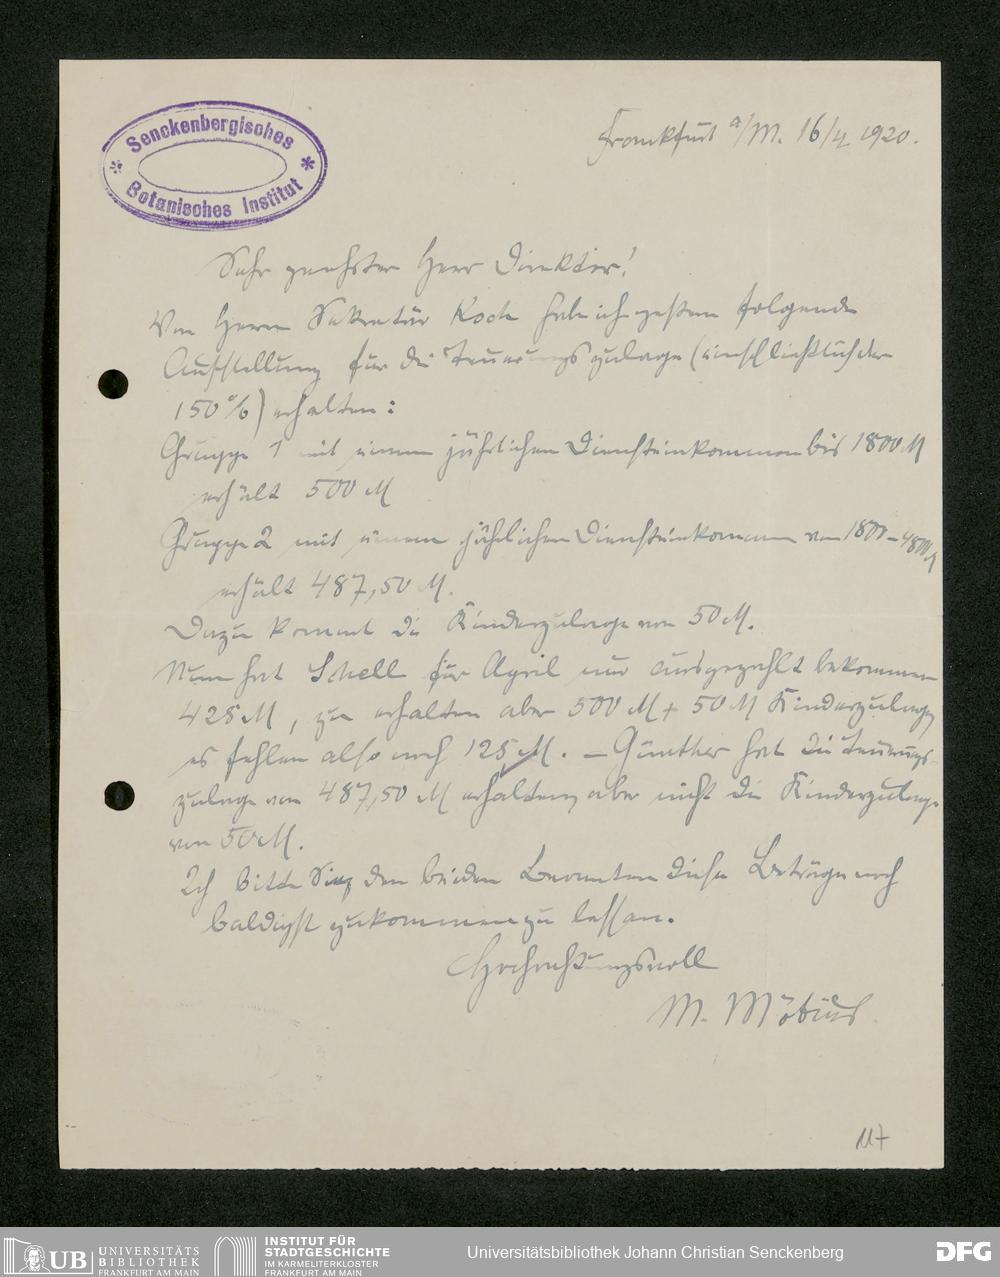 Senckenbergisches
Botanisches Institut
Frankfurt a/M. 16/4 1920.
Sehr geehrter Herr Direktor!
Von Herrn Sekretär Koch habe ich gestern folgende
Aufstellung für die Teuerungszulage (einschließlich der
150%) erhalten:
Gruppe 1 mit einem jährlichen Diensteinkommen bis 1800 M
erhält 500 M
Gruppe 2 mit einem jährlichen Diensteinkommen von 1801-4800 M
erhält 487,50 M.
Dazu kommt die Kinderzulage von 50 M.
Nun hat Schell für April nur ausgezahlt bekommen
425 M, zu erhalten aber 500 M + 50 M Kinderzulage,
es fehlen also noch 125 M. – Günther hat die Teuerungs-
zulage von 487,50 M erhalten, aber nicht die Kinderzulage
von 50 M.
Ich bitte Sie, den beiden Beamten diese Beträge noch
baldigst zukommen zu lassen.
Hochachtungsvoll
M. Möbius.
117
UB UNIVERSITÄTS
BIBLIOTHEK
FRANKFURT AM MAIN
INSTITUT FÜR
STADTGESCHICHTE
IM KARMELITERKLOSTER
FRANKFURT AM MAIN
Universitätsbibliothek Johann Christian Senckenberg
DFG